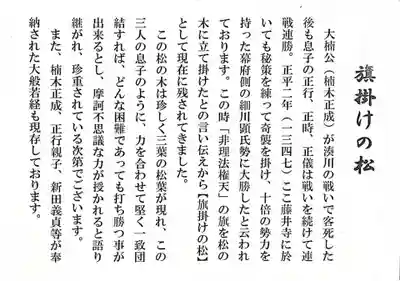 旗掛けの松
大楠公（楠木正成）が湊川の戦いで客死した
後も息子の正行、正時、正儀は戦いを続けて連
戦連勝。正平二年（一三四七）ここ藤井寺に於
いても秘策を練って奇襲を掛け、十倍の勢力を
持った幕府側の細川顕氏勢に大勝したと云われ
ております。この時「非理法権天」の旗を松の
木に立て掛けたとの言い伝えから【旗掛けの松】
として現在に残されてきました。
この松の木は珍しく三葉の松葉が現れ、この
三人の息子のように、力を合わせて堅く一致団
結すれば、どんな困難であっても打ち勝つ事が
出来るとし、摩訶不思議な力が授かれると語り
継がれ、珍重されている次第でございます。
また、楠木正成、正行親子、新田義貞等が奉
納された大般若経も現存しております。